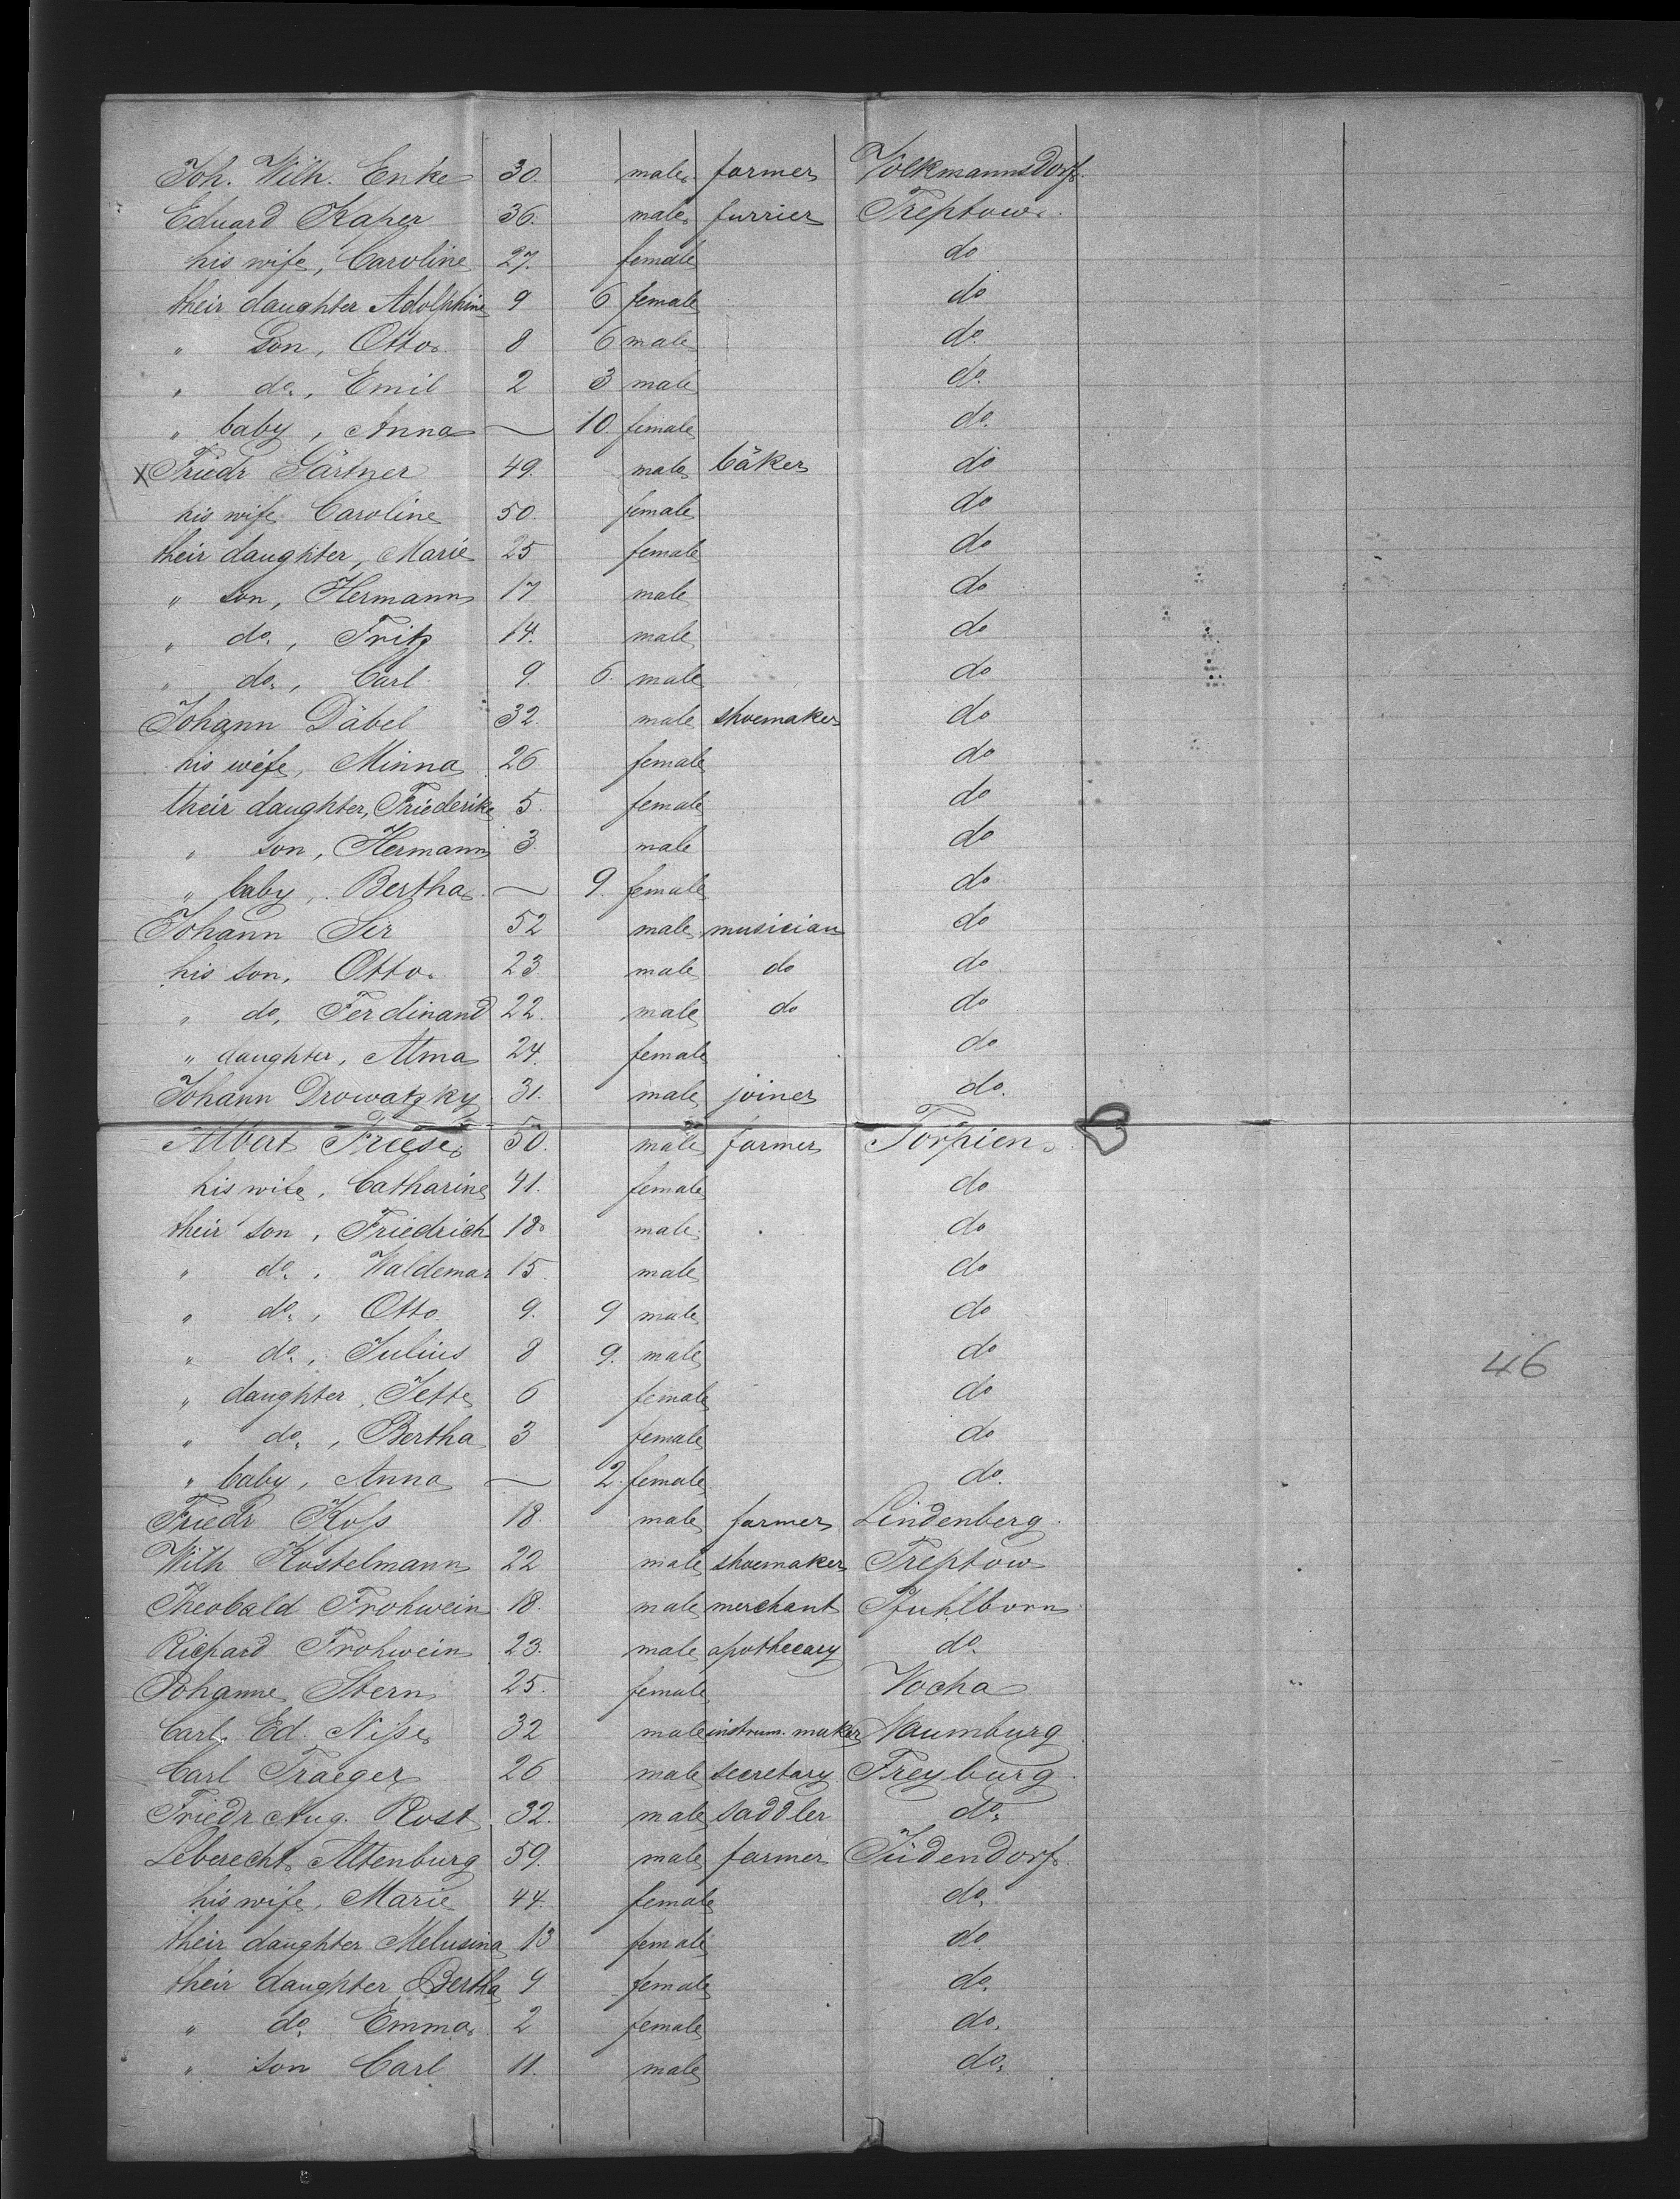 Joh. Wilh. Enke 30. male farmer Volkmannsdorf.
Eduard Kaper 36. male furrier Treptow.
his wife, Caroline 27. female do
their daughter Adolphine 9 6 female do
" Son, Otto. 8 6 male do.
" do., Emil 2 3 male do.
" baby, Anna — 10. female do.
x Friedr Gärtner 49. male bäker do
his wife Caroline 50. female do
their daughter, Marie 25 female do
" son, Hermann 17 male do
" do., Fritz 14. male do
" do., Carl 9. 6. male do
Johann Däbel 32. male shoemaker do
his wife, Minna 26 female do
their daughter, Friederike 5. female do
" son, Hermann 3. male do
" baby, Bertha — 9. female do
Johann Sir 52 male musician do
his son, Otto. 23 male do do
" do, Ferdinand 22. male do do
" daughter, Alma 24. female do
Johann Drowatzky 31. male joiner do.
Albert Friese. 50. male farmer Torpien.
his wife, Catharine 41. female do
their son, Friedrich 18. male do
" do., Waldemar 15 male do
" do., Otto 9. 9 male do
" do., Julius 8 9. male do
46
" daughter, Jette 6 female do
" do., Bertha 3 female do
" baby, Anna — 2. female do.
Friedr Koſs 18. male farmer Lindenberg.
Wilh Kostelmann 22 male shoemaker Treptow
Theobald Frohwein 18. male merchant Pfuhlborn
Richard Frohwein 23. male apothecary do.
Johanne Stern 25. female Vocha
Carl. Ed. Niſse. 32 male instrum. maker Naumburg
Carl Traeger 26 male secretary Freyburg.
Friedr Aug. Rost 32. male saddler do.
Leberecht Altenburg 59. male farmer Jüdendorf.
his wife, Marie 44. female do.
their daughter Melusina 13 female do.
their daughter Bertha 9 female do.
" do. Emma. 2 female do.
" son Carl 11. male do.